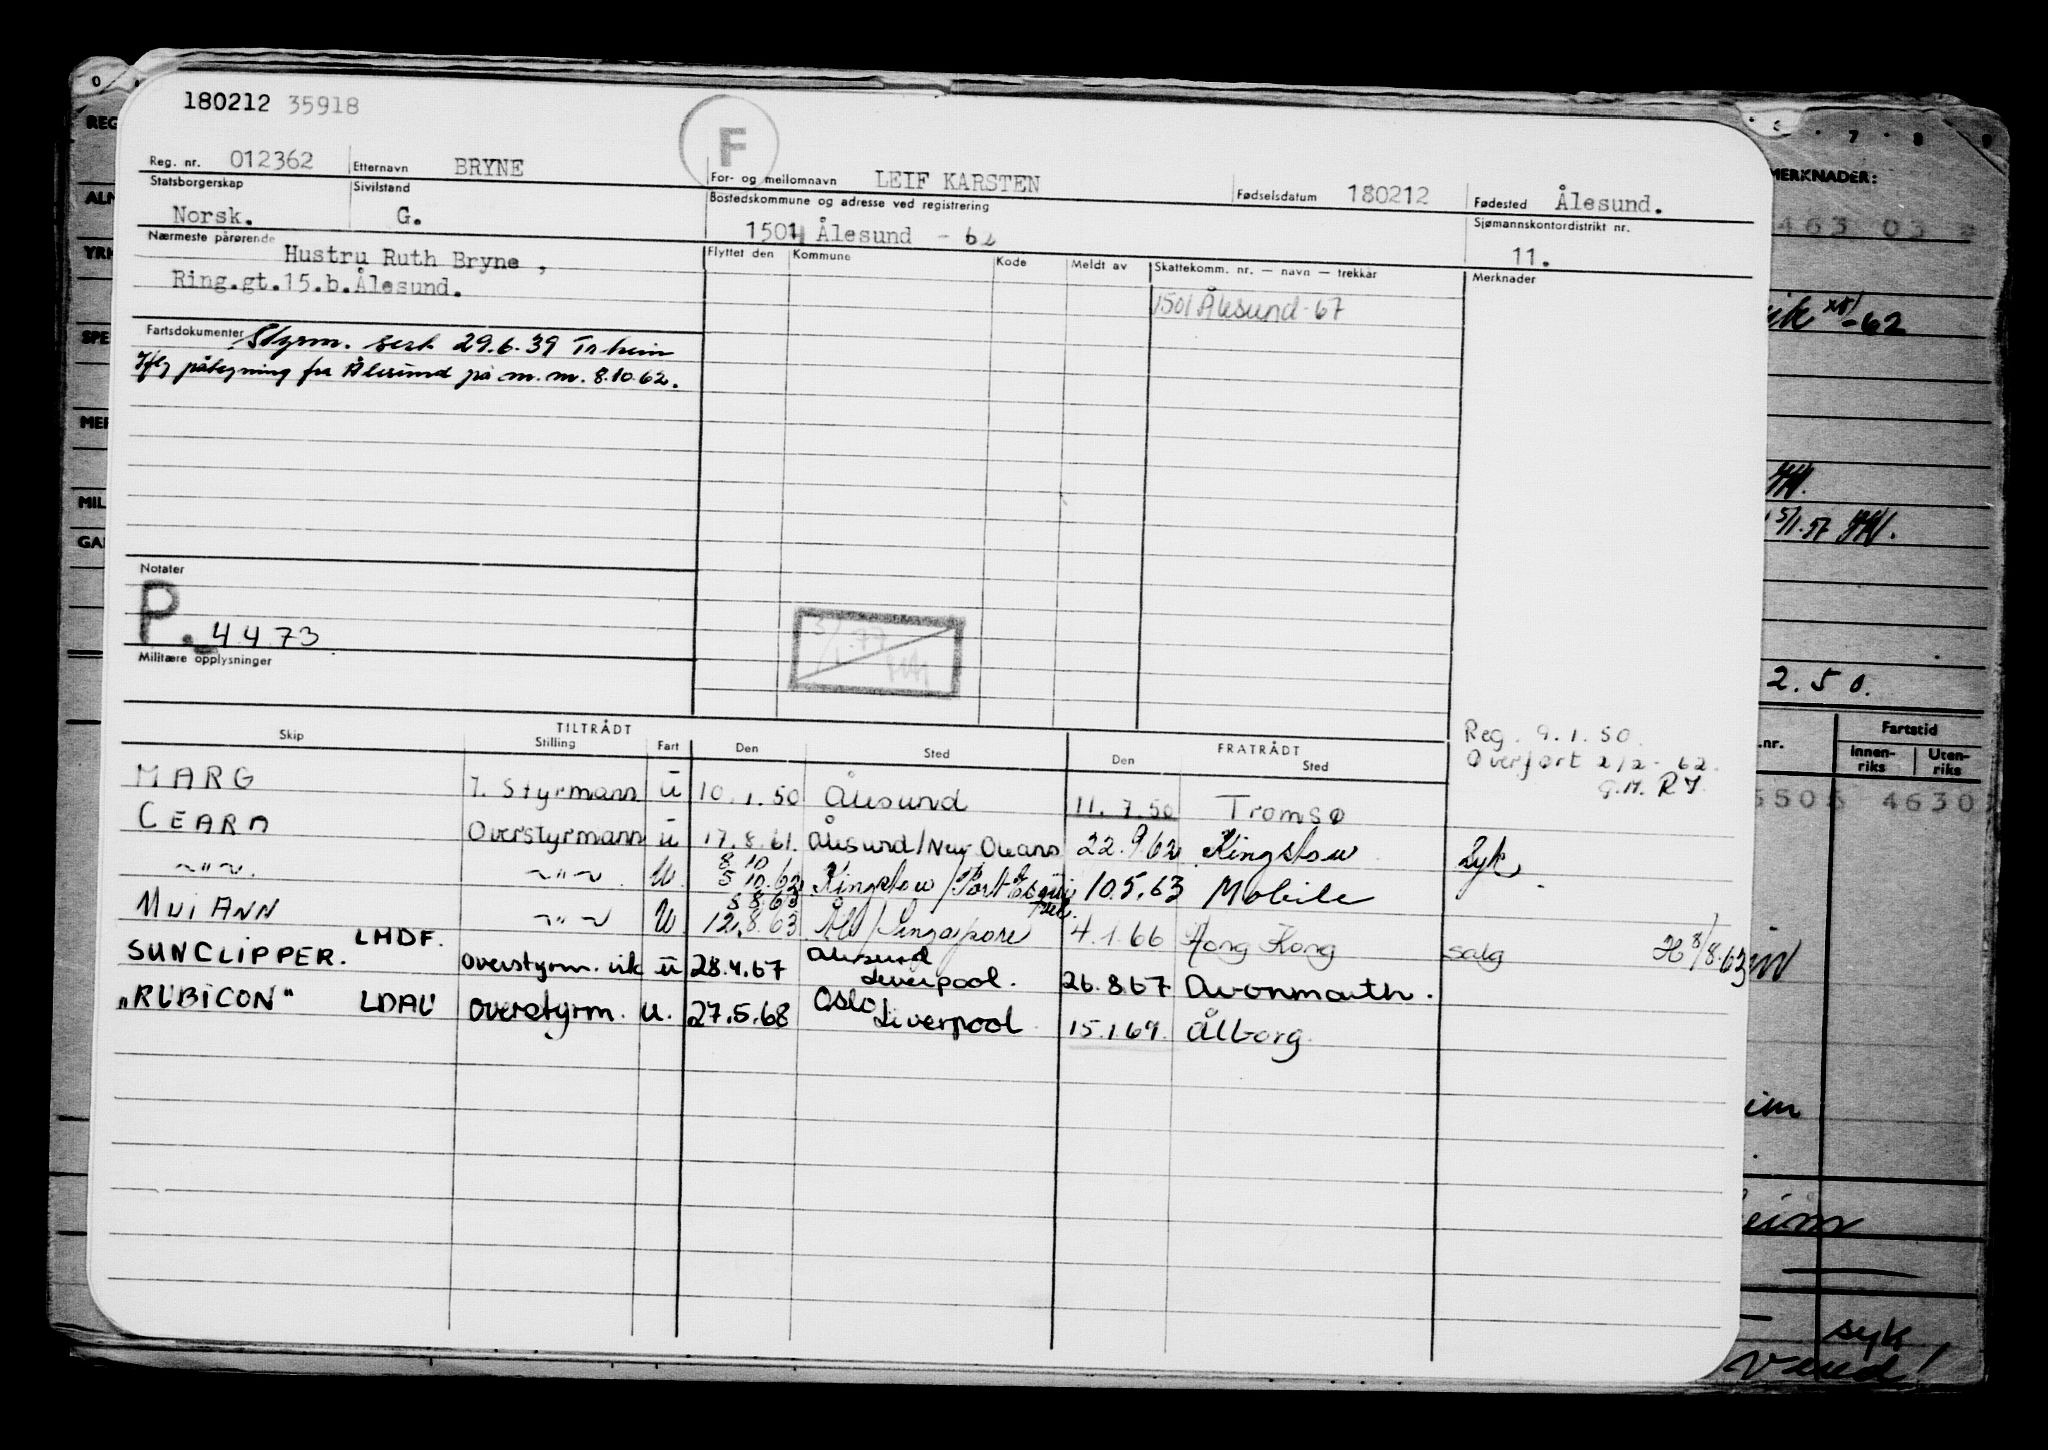 180212 35918
F
Reg. nr. 012362 Etternavn BRYNE For- og mellomnavn LEIF KARSTEN Fødselsdatum 180212 Fødested Ålesund.
Statsborgerskap Norsk. Sivilstand G. Bostedskommune og adresse ved registrering 1501 Ålesund - 62 Sjømannskontordistrikt nr. 11.
Nærmeste pårørende Hustru Ruth Bryne ,
Ring.gt.15.b.Ålesund.
Flyttet den Kommune Kode Meldt av Skattekomm. nr. — navn — trekkår Merknader
1501 Ålesund - 67
Fartsdokumenter Styrm. sert 29.6.39 Tr.heim
påtegning fra Ålesund på m.m. 8.10.62.
Notater
P. 4 4 73
Militære opplysninger
Reg. 9.1.50.
Overført 2/2 - 62.
G.M. RY
TILTRÅDT FRATRÅDT
Skip Stilling Fart Den Sted Den Sted
MARG 1. Styrmann u 10.1.50 Ålesund 11.7.50 Tromsø
CEARA Overstyrmann u 17.8.61. Ålesund/New Oleans 22.9.62 Kingstow Syk.
~"~. ~"~ U. 8 10 5 10.62 Kingstow/Port 10.5.63 Mobile
MUI ANN ~"~ U 5 8.63 12.8.63 Ål/Singapore 4.1.66 Hong Kong salg 8/8.63
SUNCLIPPER. LHDF. Overstyrm. vik u 28.4.67 Ålesund Liverpool. 26.8.67 Avonmouth.
"RUBICON" LDAU Overstyrm. u. 27.5.68 Oslo Liverpool 15.1.69. Ålborg.
0
REG
ALM
YRK
SPE
MER
MIL
GA
6 7 8 9
MERKNADER:
463 03
-62
5/1.57
2.50.
.nr. Fartstid
Innen-riks Uten-riks
5505 4630
eim
syk
Vend!